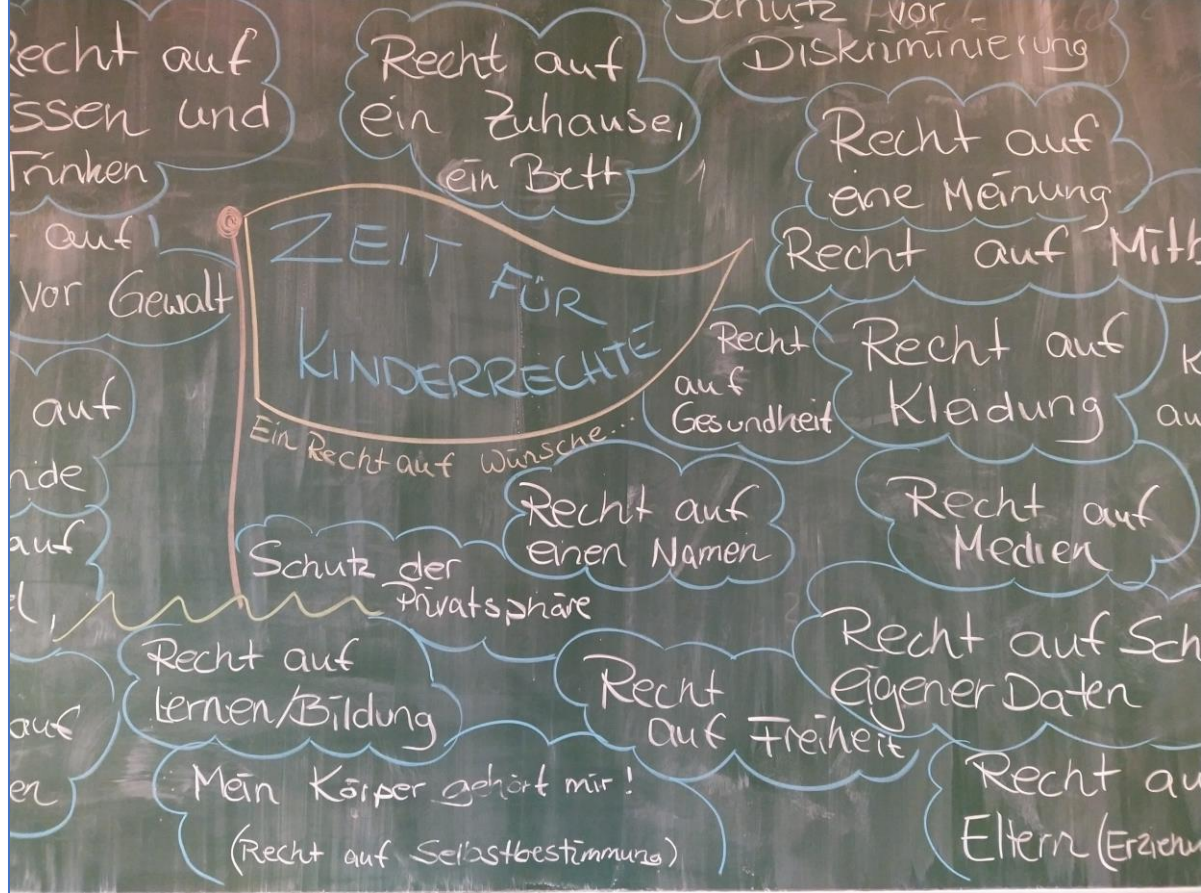 Recht auf
Essen und
Trinken
Recht auf
ein Zuhause,
ein Bett
Schutz vor
Diskriminierung
Recht auf
eine Meinung
auf
vor Gewalt
ZEIT
FÜR
KINDERRECHTE
Ein Recht auf Wünsche...
Recht auf Mitb
Recht
auf
Gesundheit
Recht auf
Kleidung
auf
nde
Recht auf
einen Namen
Recht auf
Medien
auf
Schutz der
Privatsphäre
Recht auf
Lernen/Bildung
Recht
auf Freiheit
Recht auf Sch
eigener Daten
auf
en
Mein Körper gehört mir!
(Recht auf Selbstbestimmung)
Recht au
Eltern (Erziehu